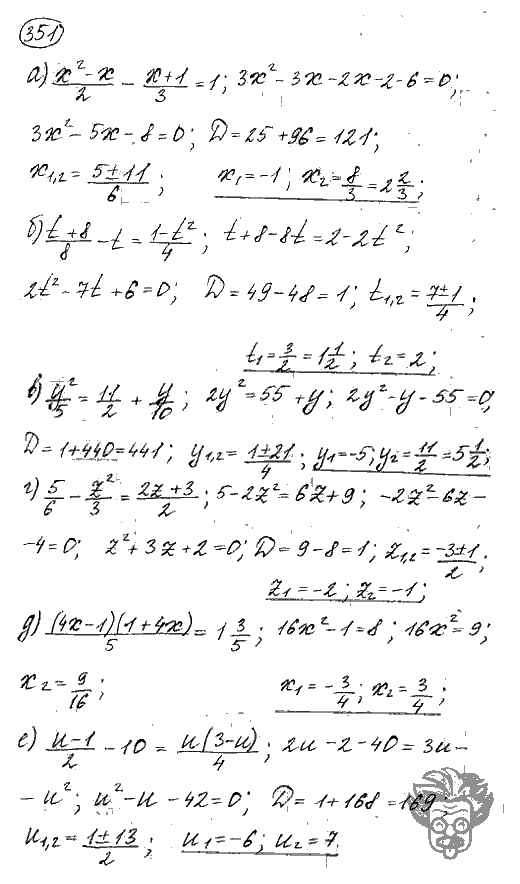 351
а) (x² - x)/2 - (x+1)/3 = 1; 3x² - 3x - 2x - 2 - 6 = 0;
3x² - 5x - 8 = 0; D = 25 + 96 = 121;
x₁,₂ = (5 ± 11)/6; x₁ = -1; x₂ = 8/3 = 2 2/3;
б) (t+8)/8 - t = (1 - t²)/4; t + 8 - 8t = 2 - 2t²;
2t² - 7t + 6 = 0; D = 49 - 48 = 1; t₁,₂ = (7 ± 1)/4;
t₁ = 3/2 = 1 1/2; t₂ = 2;
в) y²/5 = 11/2 + y/10; 2y² = 55 + y; 2y² - y - 55 = 0;
D = 1 + 440 = 441; y₁,₂ = (1 ± 21)/4; y₁ = -5; y₂ = 11/2 = 5 1/2;
г) 5/6 - z²/3 = (2z+3)/2; 5 - 2z² = 6z + 9; -2z² - 6z -
-4 = 0; z² + 3z + 2 = 0; D = 9 - 8 = 1; z₁,₂ = (-3 ± 1)/2;
z₁ = -2; z₂ = -1;
д) (4x-1)(1+4x)/5 = 1 3/5; 16x² - 1 = 8; 16x² = 9;
x2 = 9/16; x₁ = -3/4; x₂ = 3/4;
е) (u-1)/2 - 10 = u(3-u)/4; 2u - 2 - 40 = 3u -
- u²; u² - u - 42 = 0; D = 1 + 168 = 169;
u₁,₂ = (1 ± 13)/2; u₁ = -6; u₂ = 7.